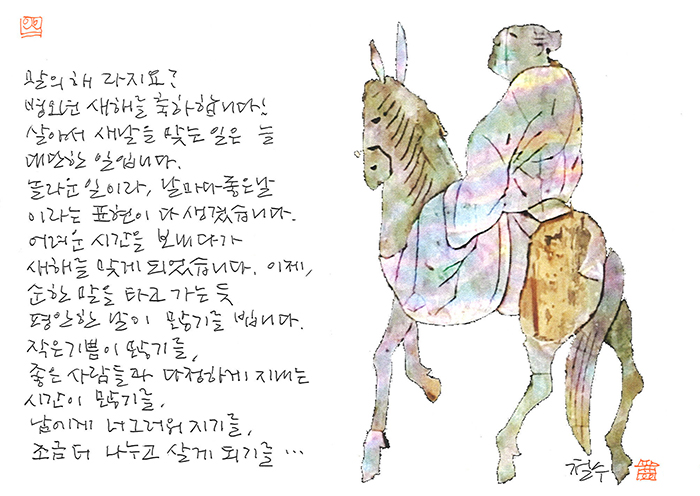 말의 해 라지요?
병오년 새해를 축하합니다!
살아서 새날을 맞는 일은 늘
대단한 일입니다.
놀라운 일이라, 날마다 좋은날
이라는 표현이 다 생겼습니다.
어려운 시간을 보내다가
새해를 맞게 되었습니다. 이제,
순한 말을 타고 가는 듯
평안한 날이 많기를 빕니다.
작은기쁨이 많기를,
좋은 사람들과 다정하게 지내는
시간이 많기를,
남에게 너그러워 지기를,
조금 더 나누고 살게 되기를 …
철수